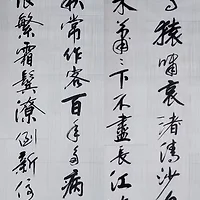 猿嘯哀渚清沙
木蕭々下不盡長江
秋常作客百年多病
繁霜鬢潦倒新停